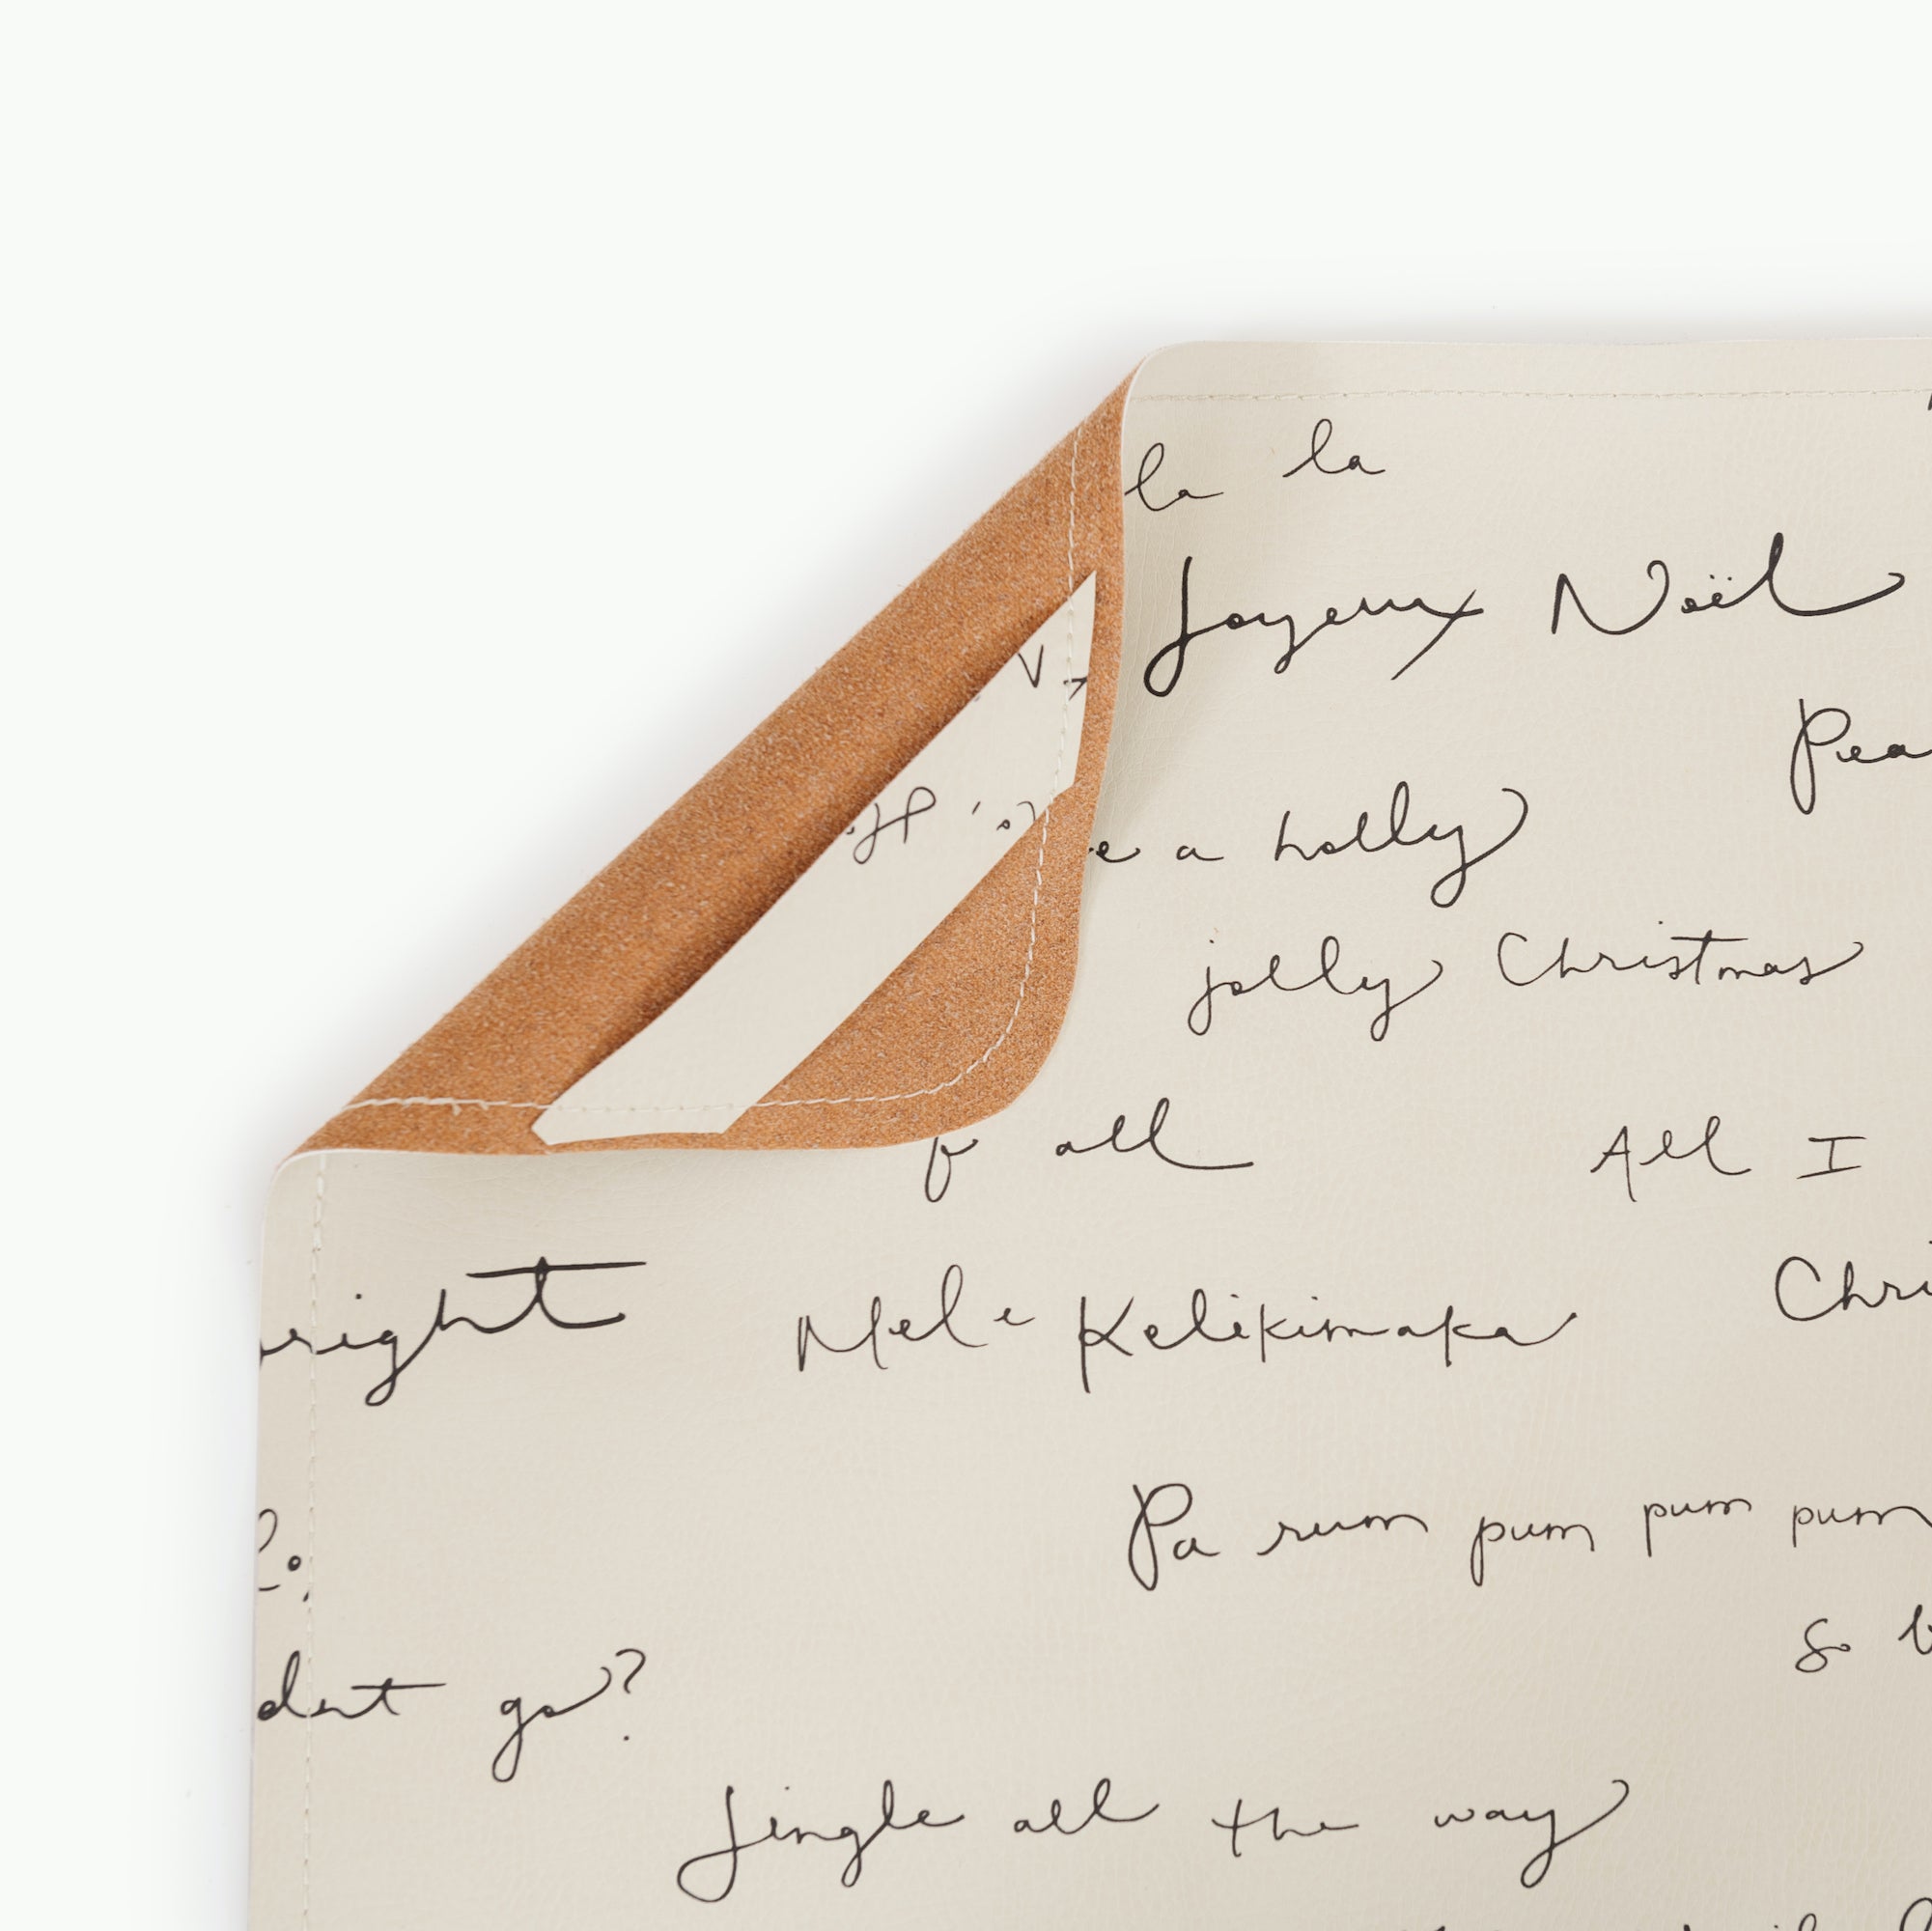 la la
Joyeux Noël
Pea
e a holly
jolly Christmas
all All I
right Mele Kelikimaka Chri
Pa rum pum pum pum
so b
dent go?
Jingle all the way